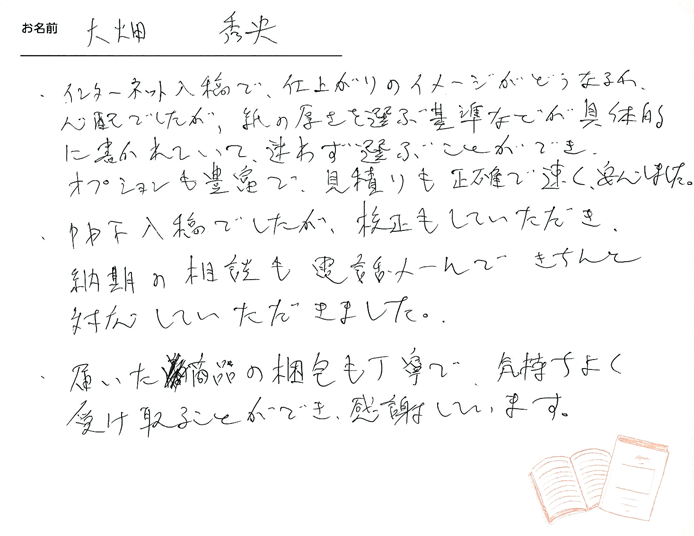 お名前 大畑 秀央
・インターネット入稿で、仕上がりのイメージがどうなるか、
心配でしたが、紙の厚さを選ぶ基準などが具体的
に書かれていて、迷わず選ぶことができ、
オプションも豊富で、見積りも正確で速く、安心しました。
・入稿でしたが、校正もしていただき、
納期の相談も電話メールできちんと
対応していただきました。
・届いた商品の梱包も丁寧で、気持ちよく
受け取ることができ、感謝しています。